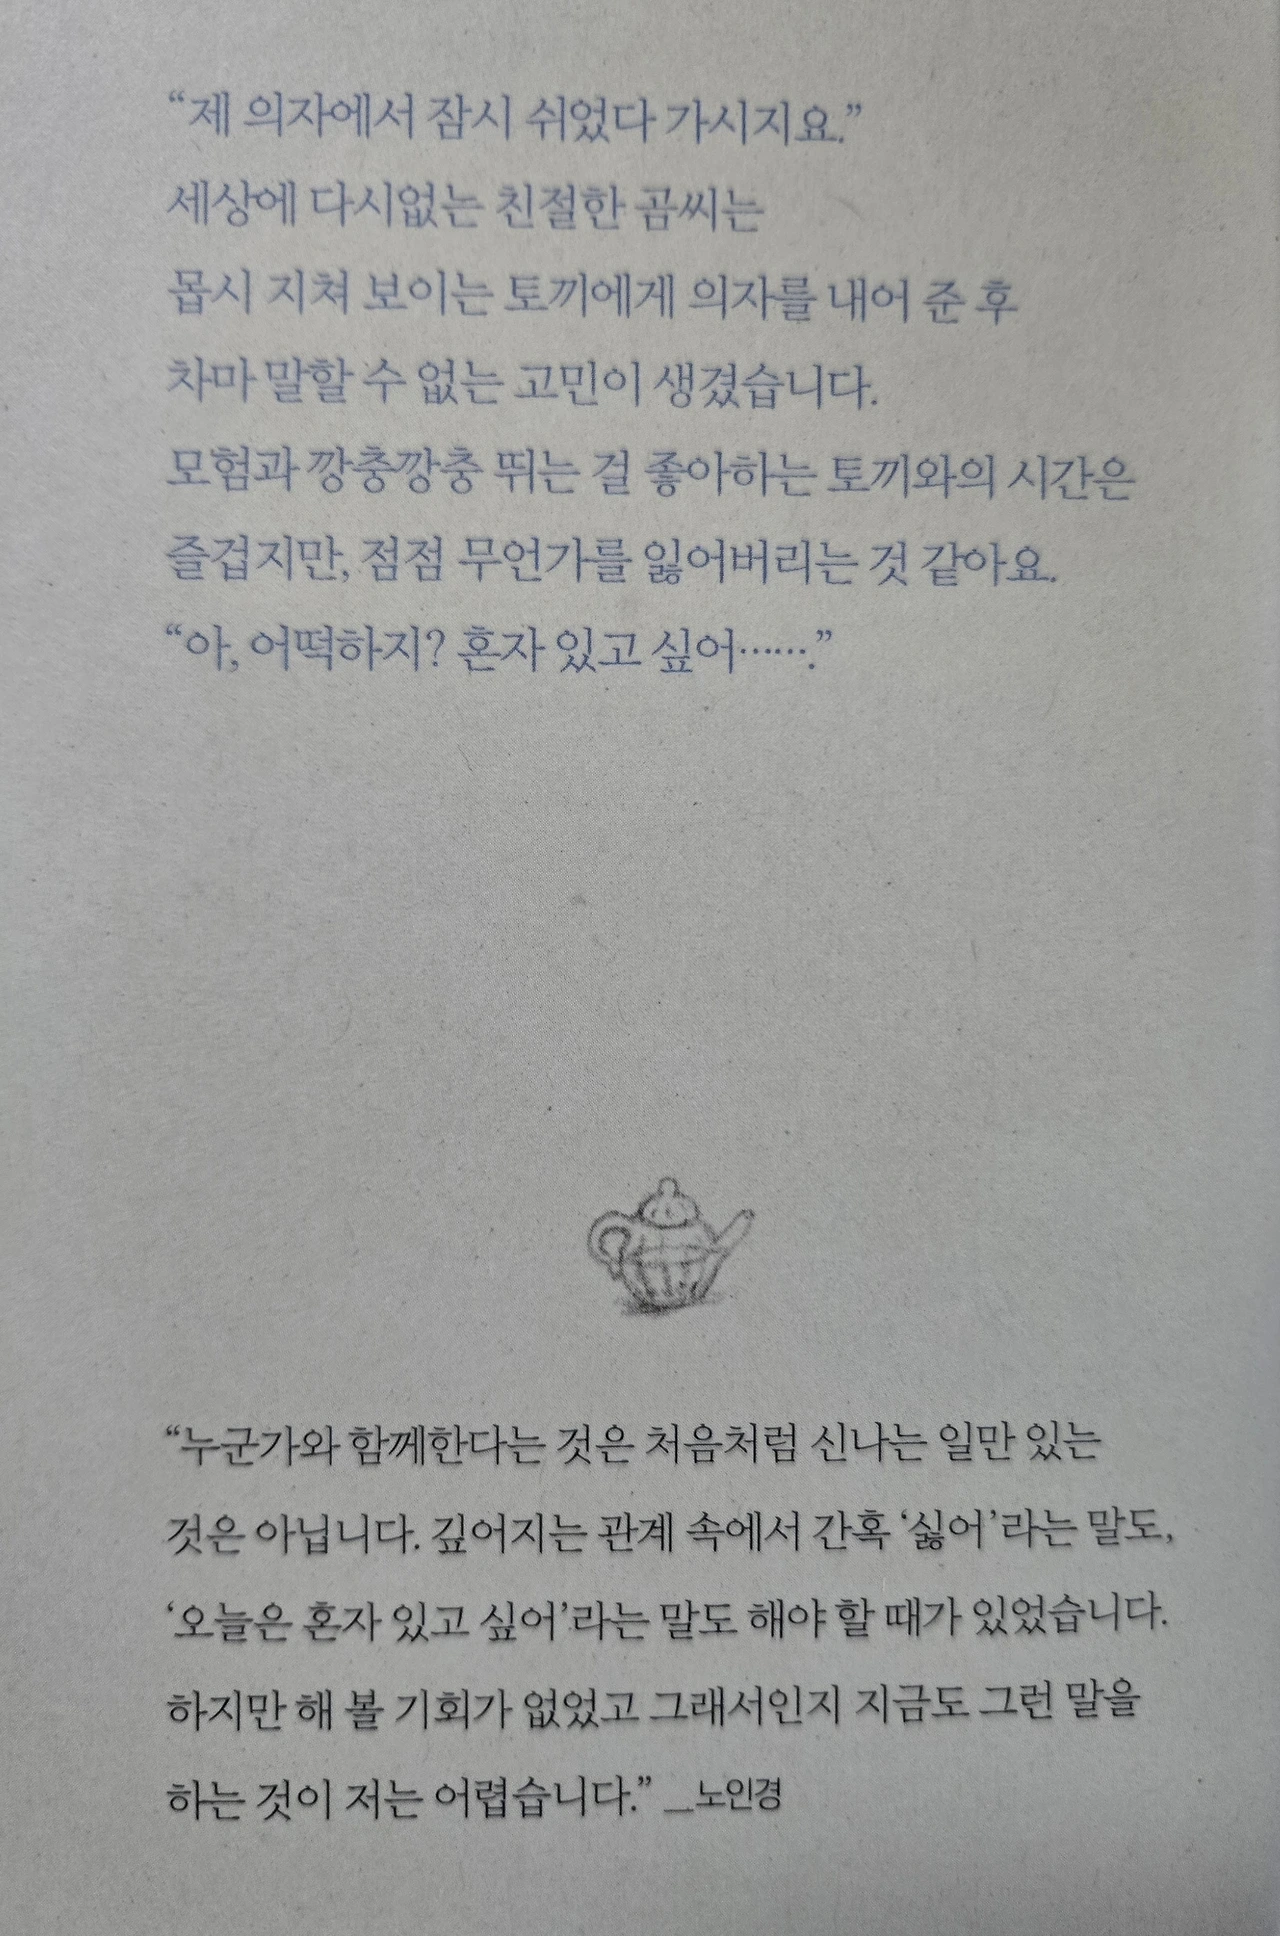 “제 의자에서 잠시 쉬었다 가시지요.”
세상에 다시없는 친절한 곰씨는
몹시 지쳐 보이는 토끼에게 의자를 내어 준 후
차마 말할 수 없는 고민이 생겼습니다.
모험과 깡충깡충 뛰는 걸 좋아하는 토끼와의 시간은
즐겁지만, 점점 무언가를 잃어버리는 것 같아요.
“아, 어떡하지? 혼자 있고 싶어…….”
“누군가와 함께한다는 것은 처음처럼 신나는 일만 있는
것은 아닙니다. 깊어지는 관계 속에서 간혹 ‘싫어’라는 말도,
‘오늘은 혼자 있고 싶어’라는 말도 해야 할 때가 있었습니다.
하지만 해 볼 기회가 없었고 그래서인지 지금도 그런 말을
하는 것이 저는 어렵습니다.” _노인경